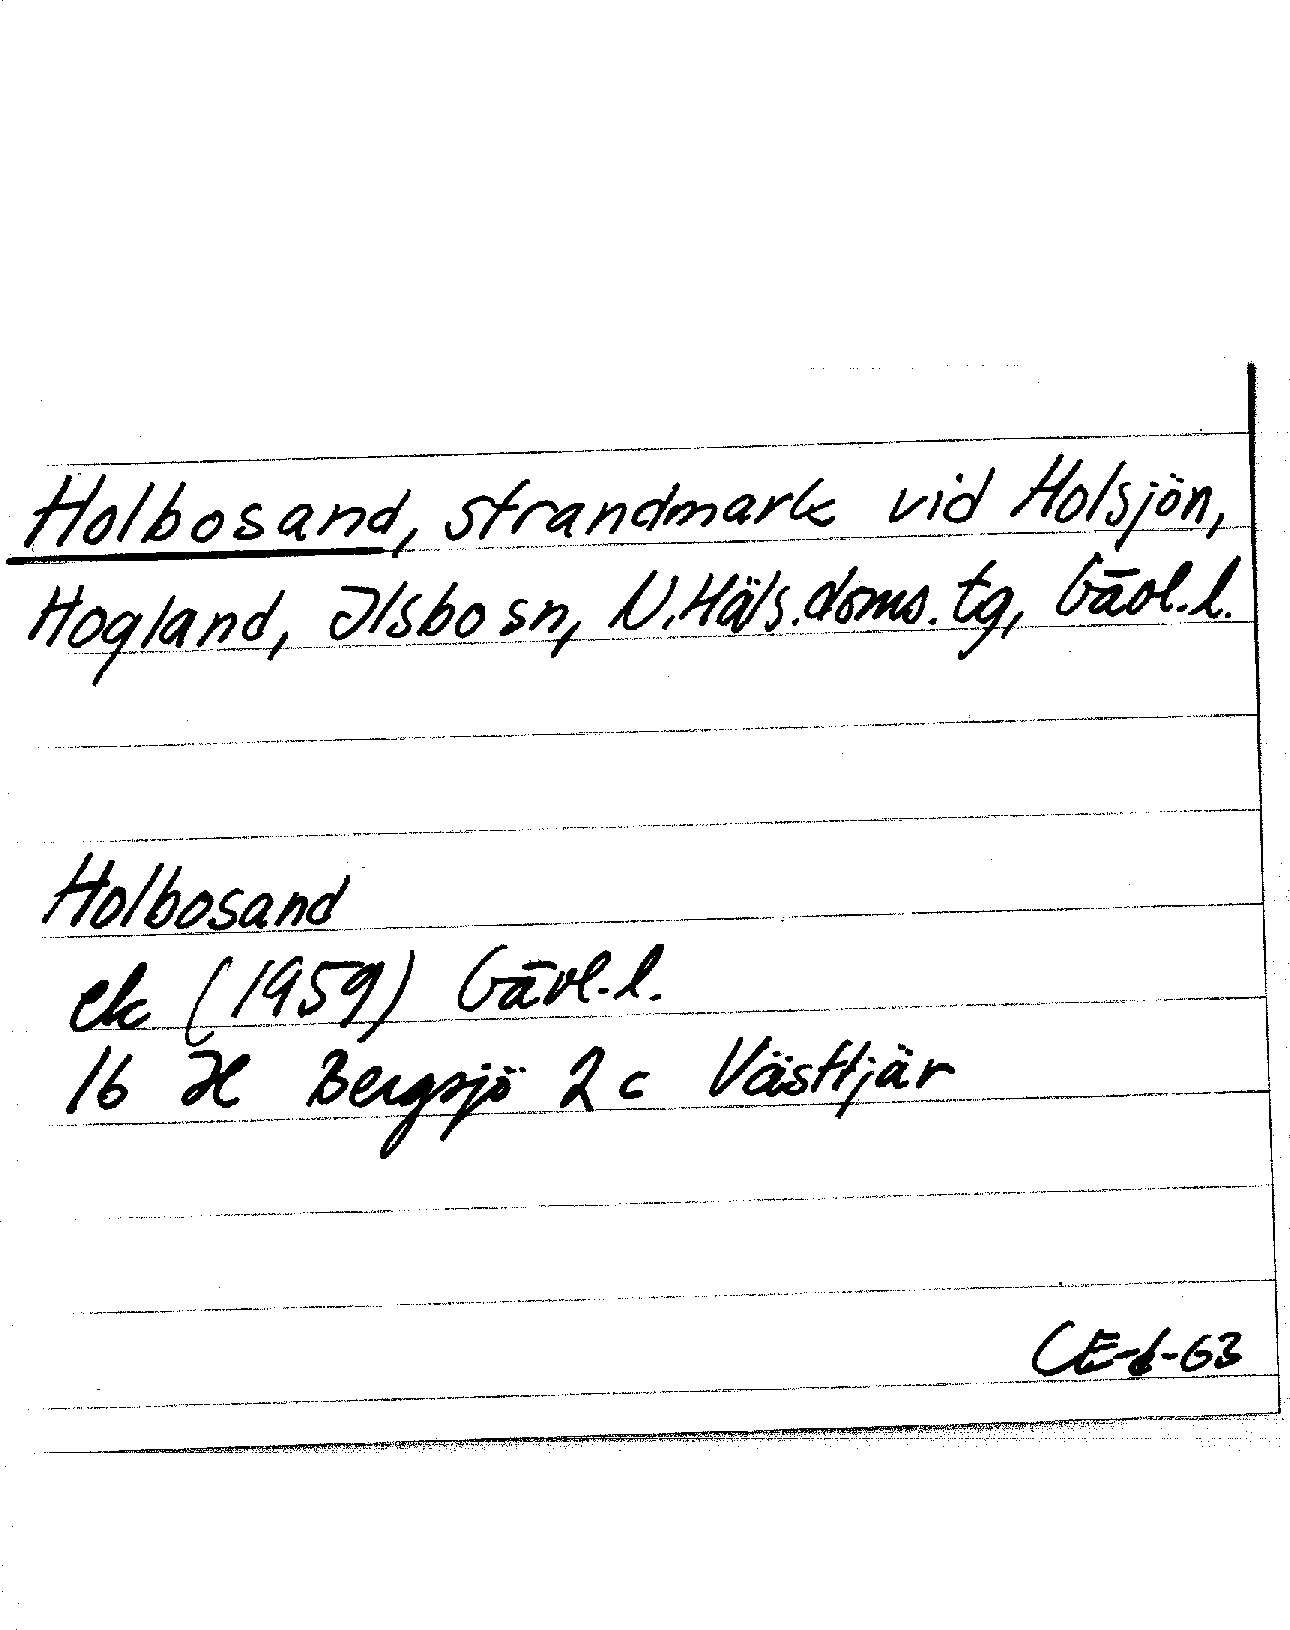 Holbosand, strandmark vid Holsjön,
Hogland, Ilsbo sn, N. Häls. doms. tg, Gävl. l.
Holbosand
ek (1959) Gävl. l.
16 H Bergsjö 2 c Västtjär
CE-6-63